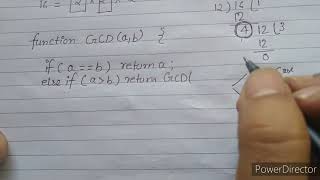 12 ) 16 ( 1
12
4 12 ( 3
12
0
function GCD(a,b) {
if (a == b) return a;
else if (a>b) return GCD(
PowerDirector